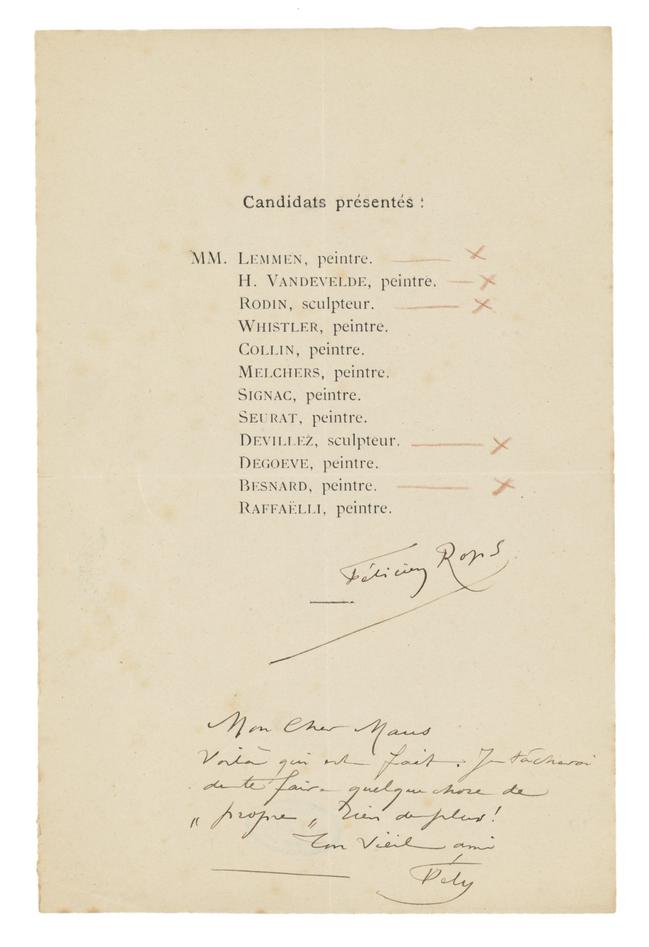 Candidats présentés :
MM. LEMMEN, peintre. —— X
H. VANDEVELDE, peintre. — X
RODIN, sculpteur. —— X
WHISTLER, peintre.
COLLIN, peintre.
MELCHERS, peintre.
SIGNAC, peintre.
SEURAT, peintre.
DEVILLEZ, sculpteur. —— X
DEGOEVE, peintre.
BESNARD, peintre. —— X
RAFFAËLLI, peintre.
Félicien Rops
Mon Cher Maus
Voilà qui est fait. Je tâcherai
de te faire quelque chose de
„ propre „ rien de plus!
Ton Vieil ami
Fély